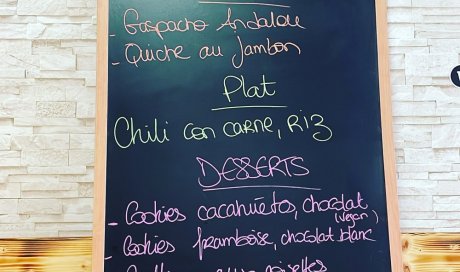 - Gaspacho Andalou
- Quiche au Jambon
Plat
Chili con carne, Riz
DESSERTS
- Cookies cacahuètes, chocolat
(vegan)
- Cookies framboise, chocolat blanc
noisettes